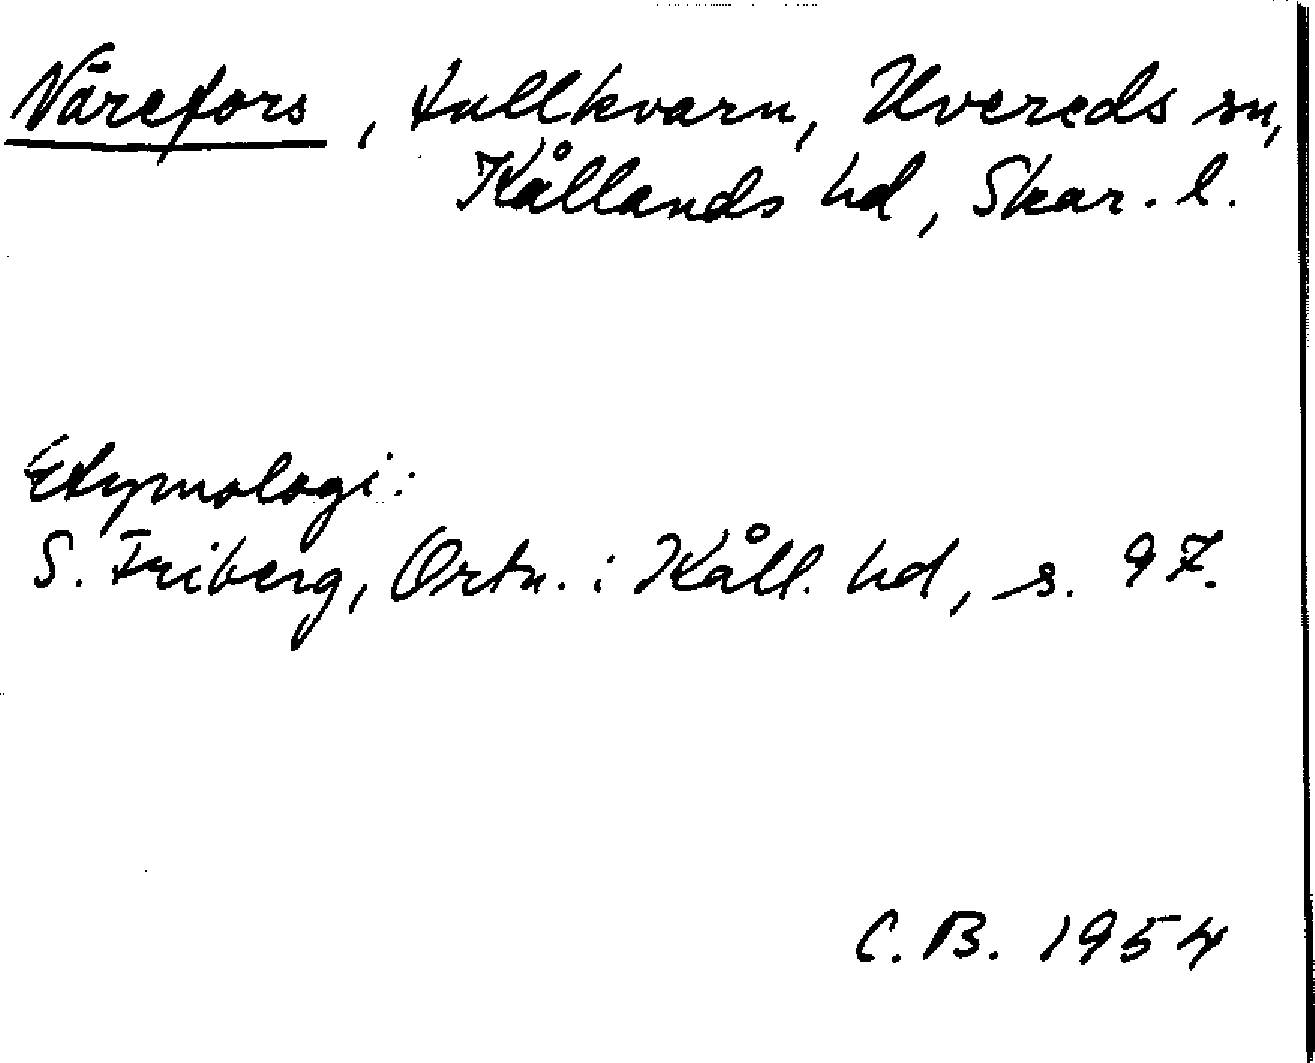 Närefors, tullkvarn, Uvereds sn,
Kållands hd, Skar. l.
Etymologi:
S. Friberg, Ortn. i Kåll. hd, s. 97.
C. B. 1954